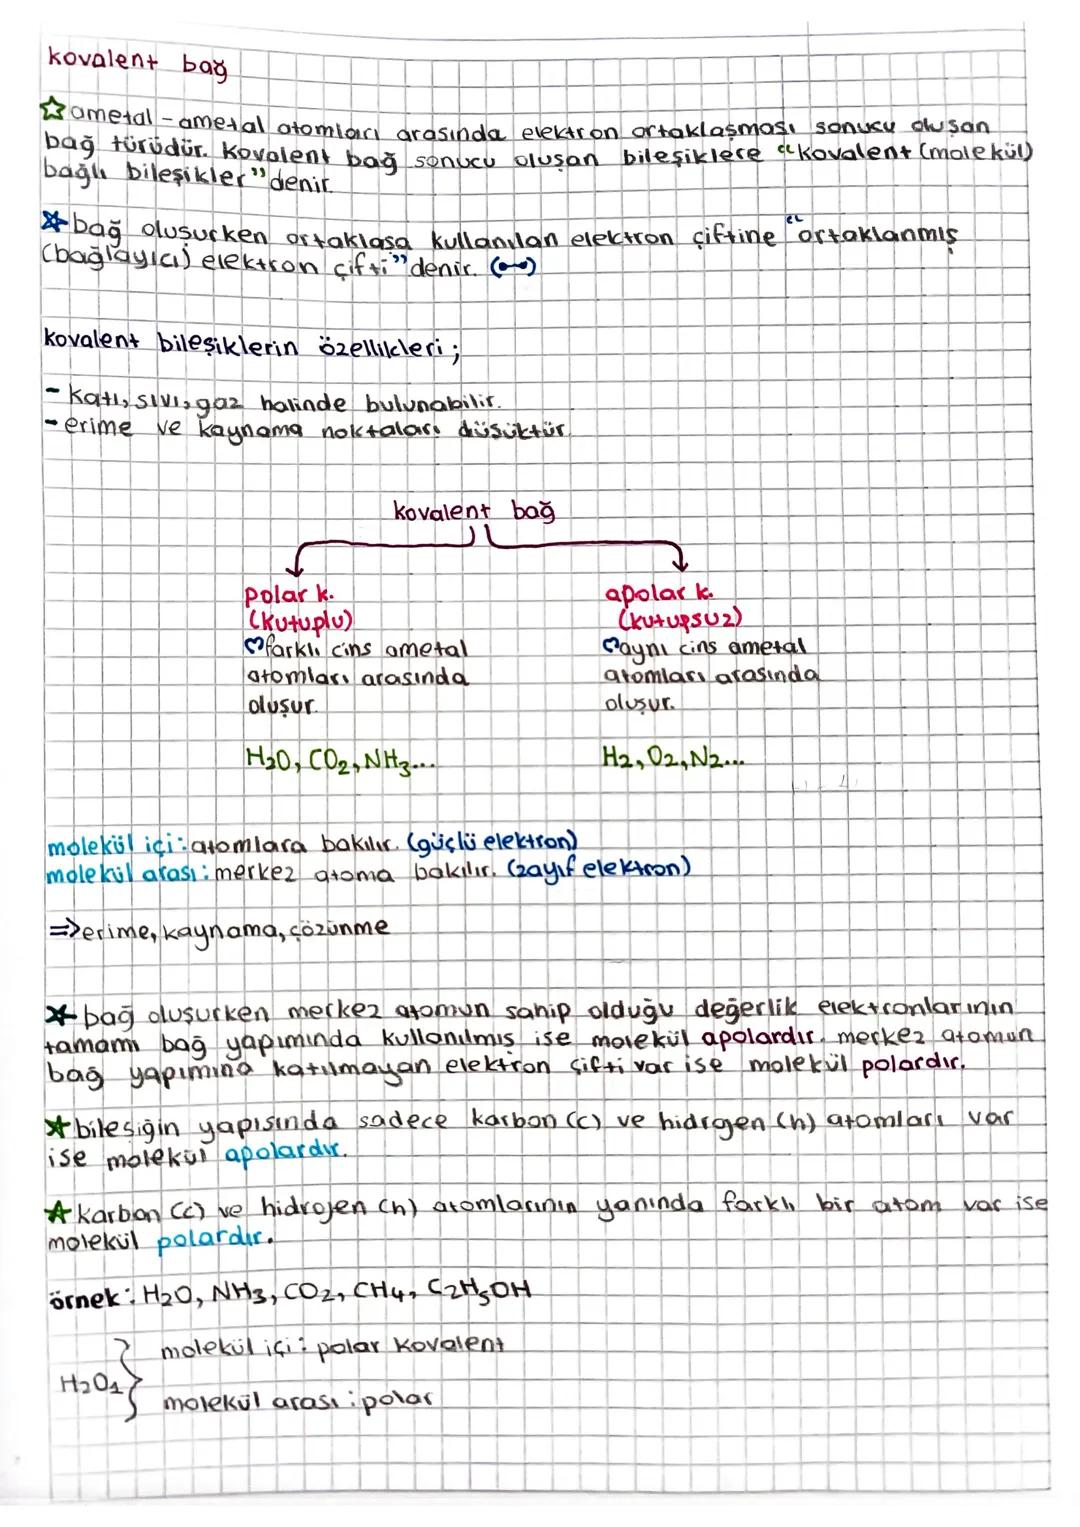 kovalent bağ
☆ ametal - ametal atomları arasında elektron ortaklaşması sonucu oluşan
bağ türüdür. Kovalent bağ sonucu oluşan bileşiklere "kovalent (molekül)
bağlı bileşikler" denir.
* bağ oluşurken ortaklaşa kullanılan elektron çiftine "ortaklanmış
(bağlayıcı) elektron çifti" denir.
kovalent bileşiklerin özellikleri;
- katı, sıvı, gaz halinde bulunabilir.
- erime ve kaynama noktaları düşüktür.
kovalent bağ
polar k.
(kutuplu)
♡farklı cins ametal
atomları arasında
oluşur.
H₂O, CO₂, NH₃...
apolar k.
(kutupsuz)
♡aynı cins ametal
atomları arasında
oluşur.
H₂, O₂, N₂...
molekül içi: atomlara bakılır. (güçlü elektron)
molekül arası: merkez atoma bakılır. (zayıf elektron)
=> erime, kaynama, çözünme
* bağ oluşurken merkez atomun sahip olduğu değerlik elektronlarının
tamamı bağ yapımında kullanılmış ise molekül apolardır. merkez atomun
bağ yapımına katılmayan elektron çifti var ise molekül polardır.
* bileşiğin yapısında sadece karbon (c) ve hidrogen (h) atomları var
ise molekül apolardır.
* karbon (c) ve hidrojen (h) atomlarının yanında farklı bir atom var ise
molekül polardır.
örnek: H₂O, NH₃, CO₂, CH₄, C₂H₅OH
molekül içi: polar kovalent
H₂O₁
molekül arası: polar